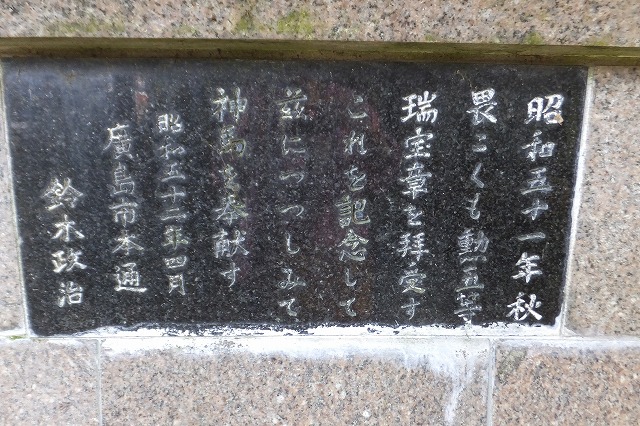 昭和五十一年秋
畏こくも勲五等
瑞宝章を拝受す
これを記念して
茲につつしみて
神馬を奉献す
昭和五十二年四月
廣島市本通
鈴木政治